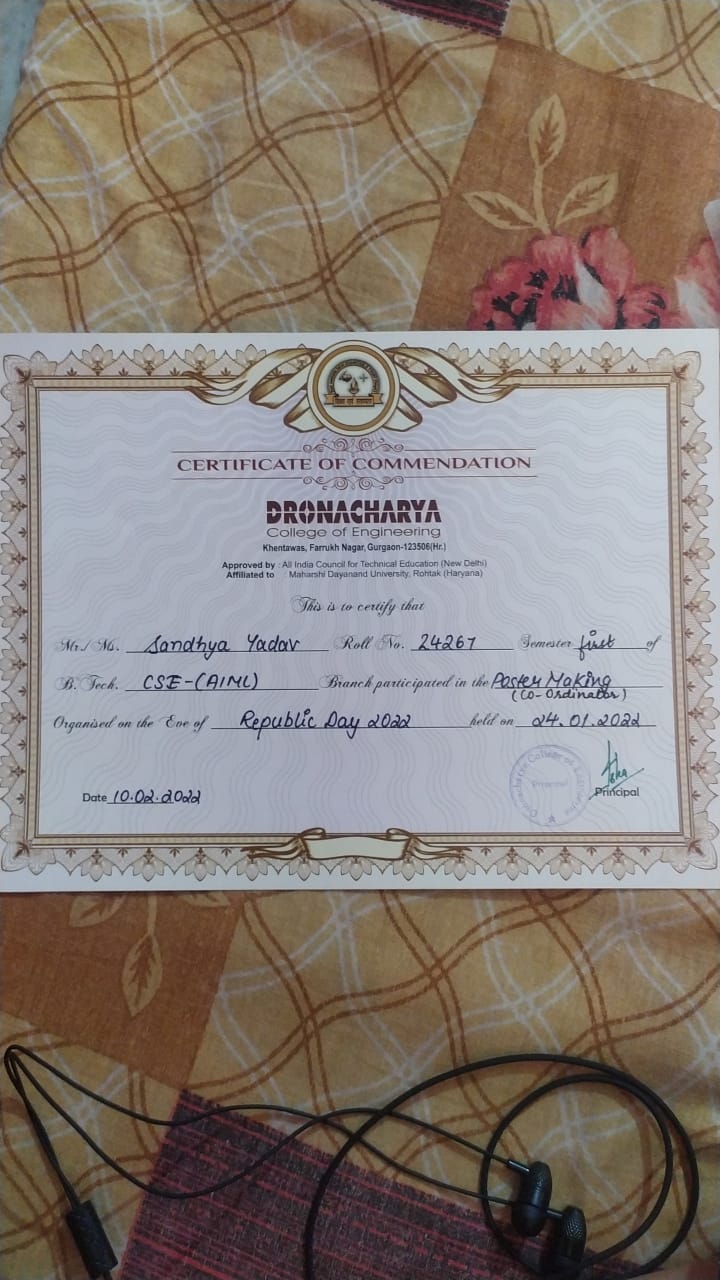 CERTIFICATE OF COMMENDATION
DRONACHARYA
College of Engineering
Khentawas, Farrukh Nagar, Gurgaon-123506(Hr.)
Approved by : All India Council for Technical Education (New Delhi)
Affiliated to : Maharshi Dayanand University, Rohtak (Haryana)
This is to certify that
Mr./Ms. Sandhya Yadav Roll No. 24267 Semester first of
B. Tech. CSE-(AIML) Branch participated in the Poster Making
(Co-Ordinator)
Organised on the Eve of Republic Day 2022 held on 24.01.2022
Dronacharya College of Engineering
Principal
Date 10.02.2022
Principal